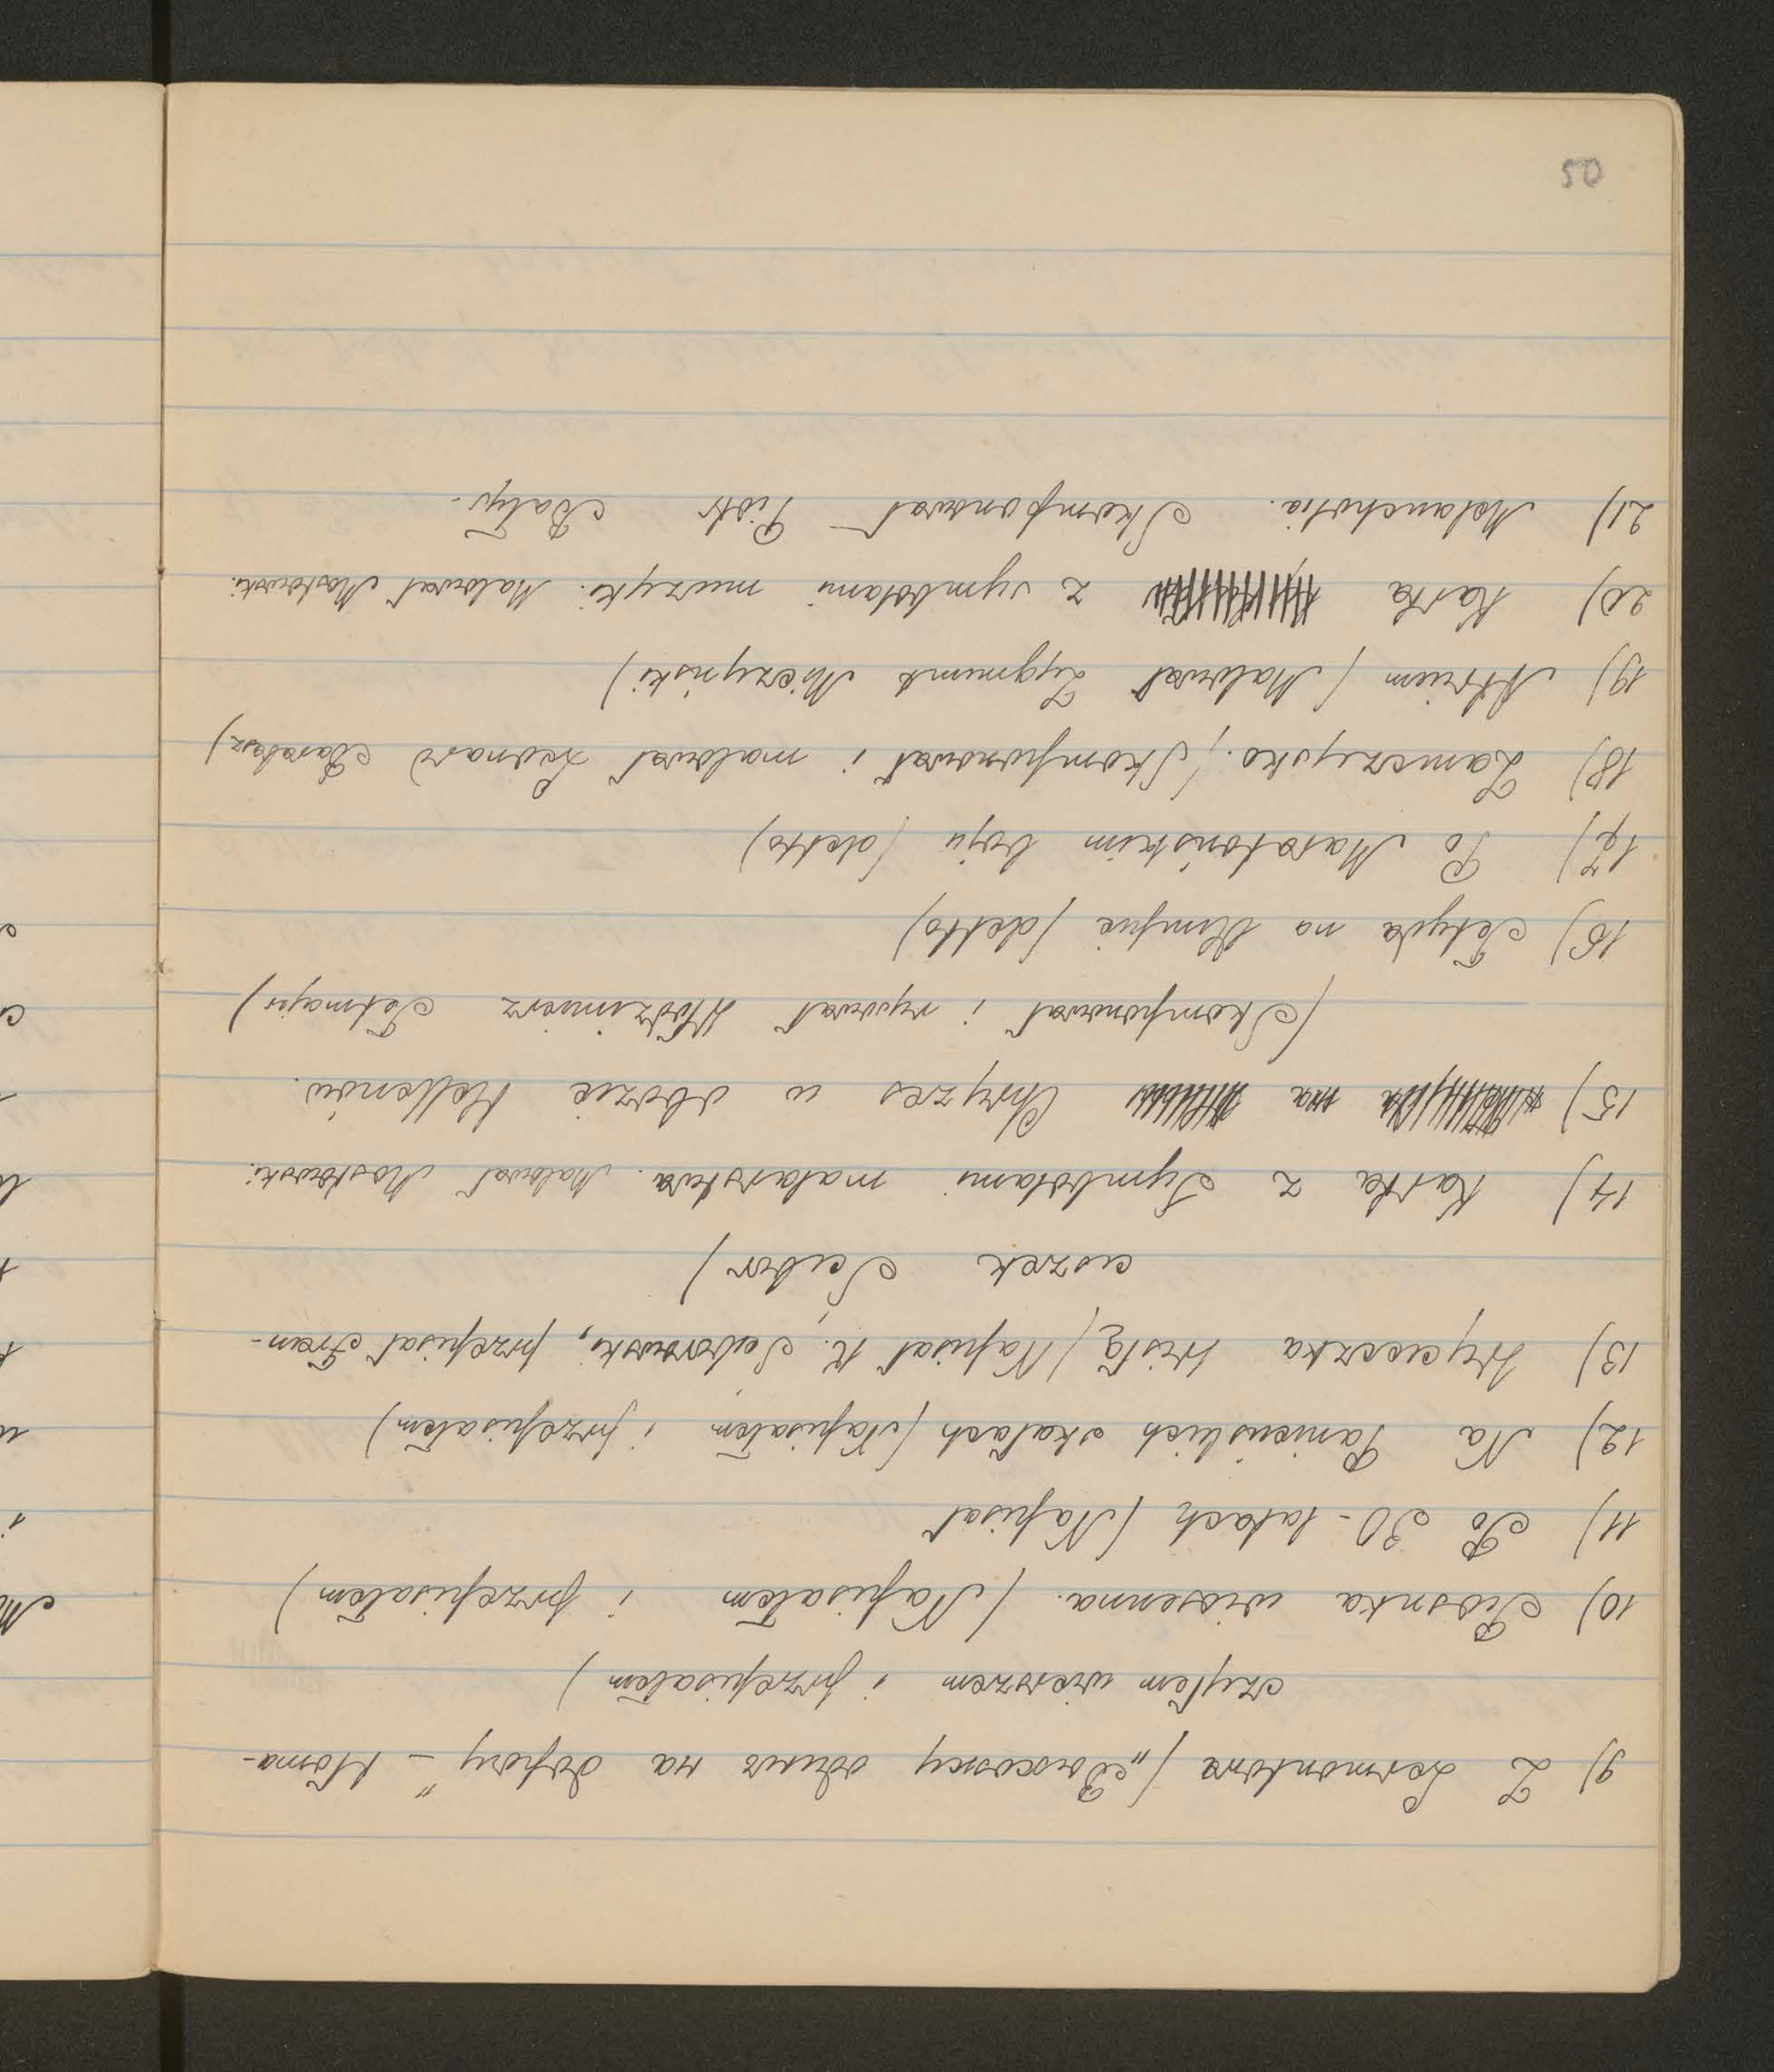 50
9) Z Lermontowa („Выхожу один на дорогу" – tłoma-
czyłem wierszem i przepisałem)
10) Piosnka wiosenna. (Napisałem i przepisałem)
11) Po 30-latach (Napisał
12) Na Panieńskich skałach (Napisałem i przepisałem)
13) Wycieczka Wisłą (Napisał K. Ściborowski, przepisał Fran-
ciszek Ścibor)
14) Kartka z Symbolami malarstwa. Malował Mostowski.
15) na Chryzes w obozie Hellenów.
(Skomponował i rysował Włodzimierz Tetmajer)
16) Tetyda na Olimpie (detto)
17) Po Maratońskim boju (detto)
18) Zamczysko. (Skomponował i malował Leonard Barabasz)
19) Atrium (Malował Zygmunt Miczyński)
20) Kartka z symbolami muzyki. Malował Mostowski.
21) Melancholia. Skomponował – Piotr